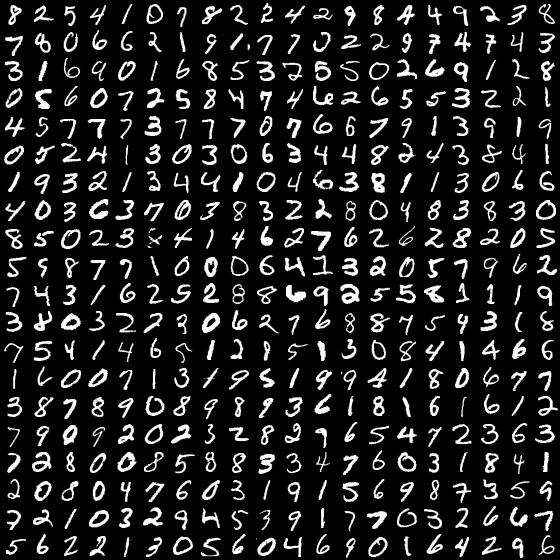 8 2 5 4 1 0 7 8 2 2 4 2 9 8 4 4 9 2 3 8
7 8 0 6 6 2 1 9 1 7 7 0 2 2 9 7 4 7 4 3
3 1 6 9 0 1 6 8 5 3 2 5 5 0 2 6 9 1 2 8
0 5 6 0 7 2 5 8 4 7 4 6 2 6 5 5 3 2 2 1
4 5 7 7 7 3 7 7 7 0 7 6 6 7 9 1 3 9 1 9
0 5 2 4 1 3 0 3 0 6 3 4 4 8 2 4 3 8 4 1
1 9 3 2 1 2 4 4 1 0 4 6 3 8 1 1 3 0 6 6
4 0 3 6 3 7 0 3 8 3 2 2 8 0 4 8 3 8 3 0
8 5 0 2 3 4 1 4 6 2 7 6 2 6 2 8 2 0 5
5 9 8 7 7 1 0 0 0 6 4 1 3 2 0 5 7 9 6 2
7 4 3 1 6 2 5 2 8 8 6 9 2 5 5 8 1 1 1 9
3 8 0 3 2 2 9 0 6 2 7 6 8 8 7 5 4 3 1 8
7 5 4 1 4 6 5 1 2 8 5 1 3 0 8 4 1 4 6 6
1 6 0 0 7 1 3 1 9 5 1 9 9 4 1 8 0 6 7 7
3 8 7 8 9 0 8 9 8 9 3 6 1 8 1 6 1 6 1 2
7 9 0 9 2 0 2 3 2 8 2 9 6 5 4 7 2 3 6 3
2 2 8 0 0 8 5 8 8 3 3 4 7 6 0 3 1 8 4 1
2 0 8 0 4 7 6 0 3 1 9 1 5 6 9 8 7 3 5 9
7 2 1 0 3 2 9 4 5 3 9 1 7 7 0 3 2 6 6 7
5 6 2 2 1 3 0 5 6 0 4 6 9 0 1 6 4 2 9 6